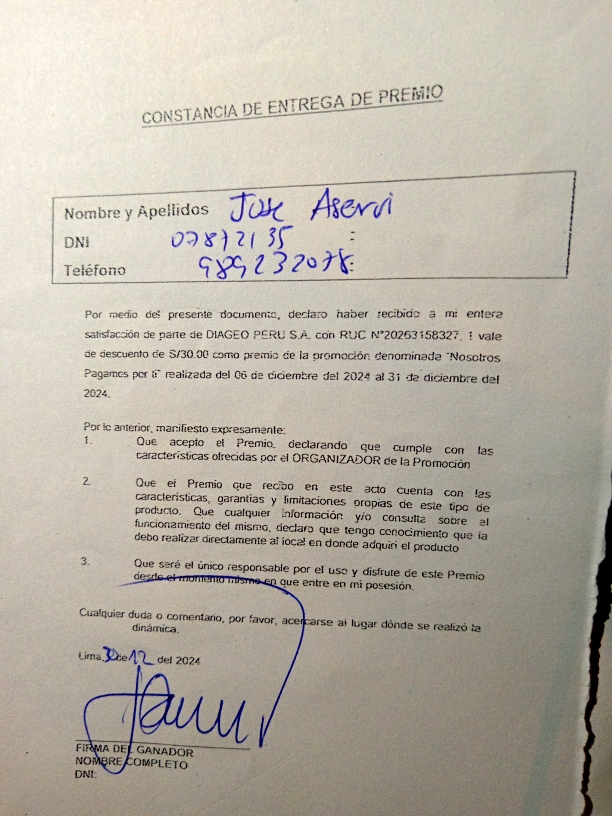 CONSTANCIA DE ENTREGA DE PREMIO
Nombre y Apellidos Jose
DNI 07872135 :
Teléfono 989232078 :
Por medio del presente documento, declaro haber recibido a mi entera
satisfacción de parte de DIAGEO PERU S.A. con RUC N°20263158327, 1 vale
de descuento de S/30.00 como premio de la promoción denominada "Nosotros
Pagamos por ti" realizada del 06 de diciembre del 2024 al 31 de diciembre del
2024.
Por lo anterior, manifiesto expresamente:
1. Que acepto el Premio, declarando que cumple con las
características ofrecidas por el ORGANIZADOR de la Promoción
2. Que el Premio que recibo en este acto cuenta con las
características, garantías y limitaciones propias de este tipo de
producto. Que cualquier información y/o consulta sobre el
funcionamiento del mismo, declaro que tengo conocimiento que la
debo realizar directamente al local en donde adquirí el producto
3. Que seré el único responsable por el uso y disfrute de este Premio
desde el momento mismo en que entre en mi posesión.
Cualquier duda o comentario, por favor, acercarse al lugar dónde se realizó la
dinámica.
Lima, 30 de 12 del 2024
FIRMA DEL GANADOR
NOMBRE COMPLETO
DNI: